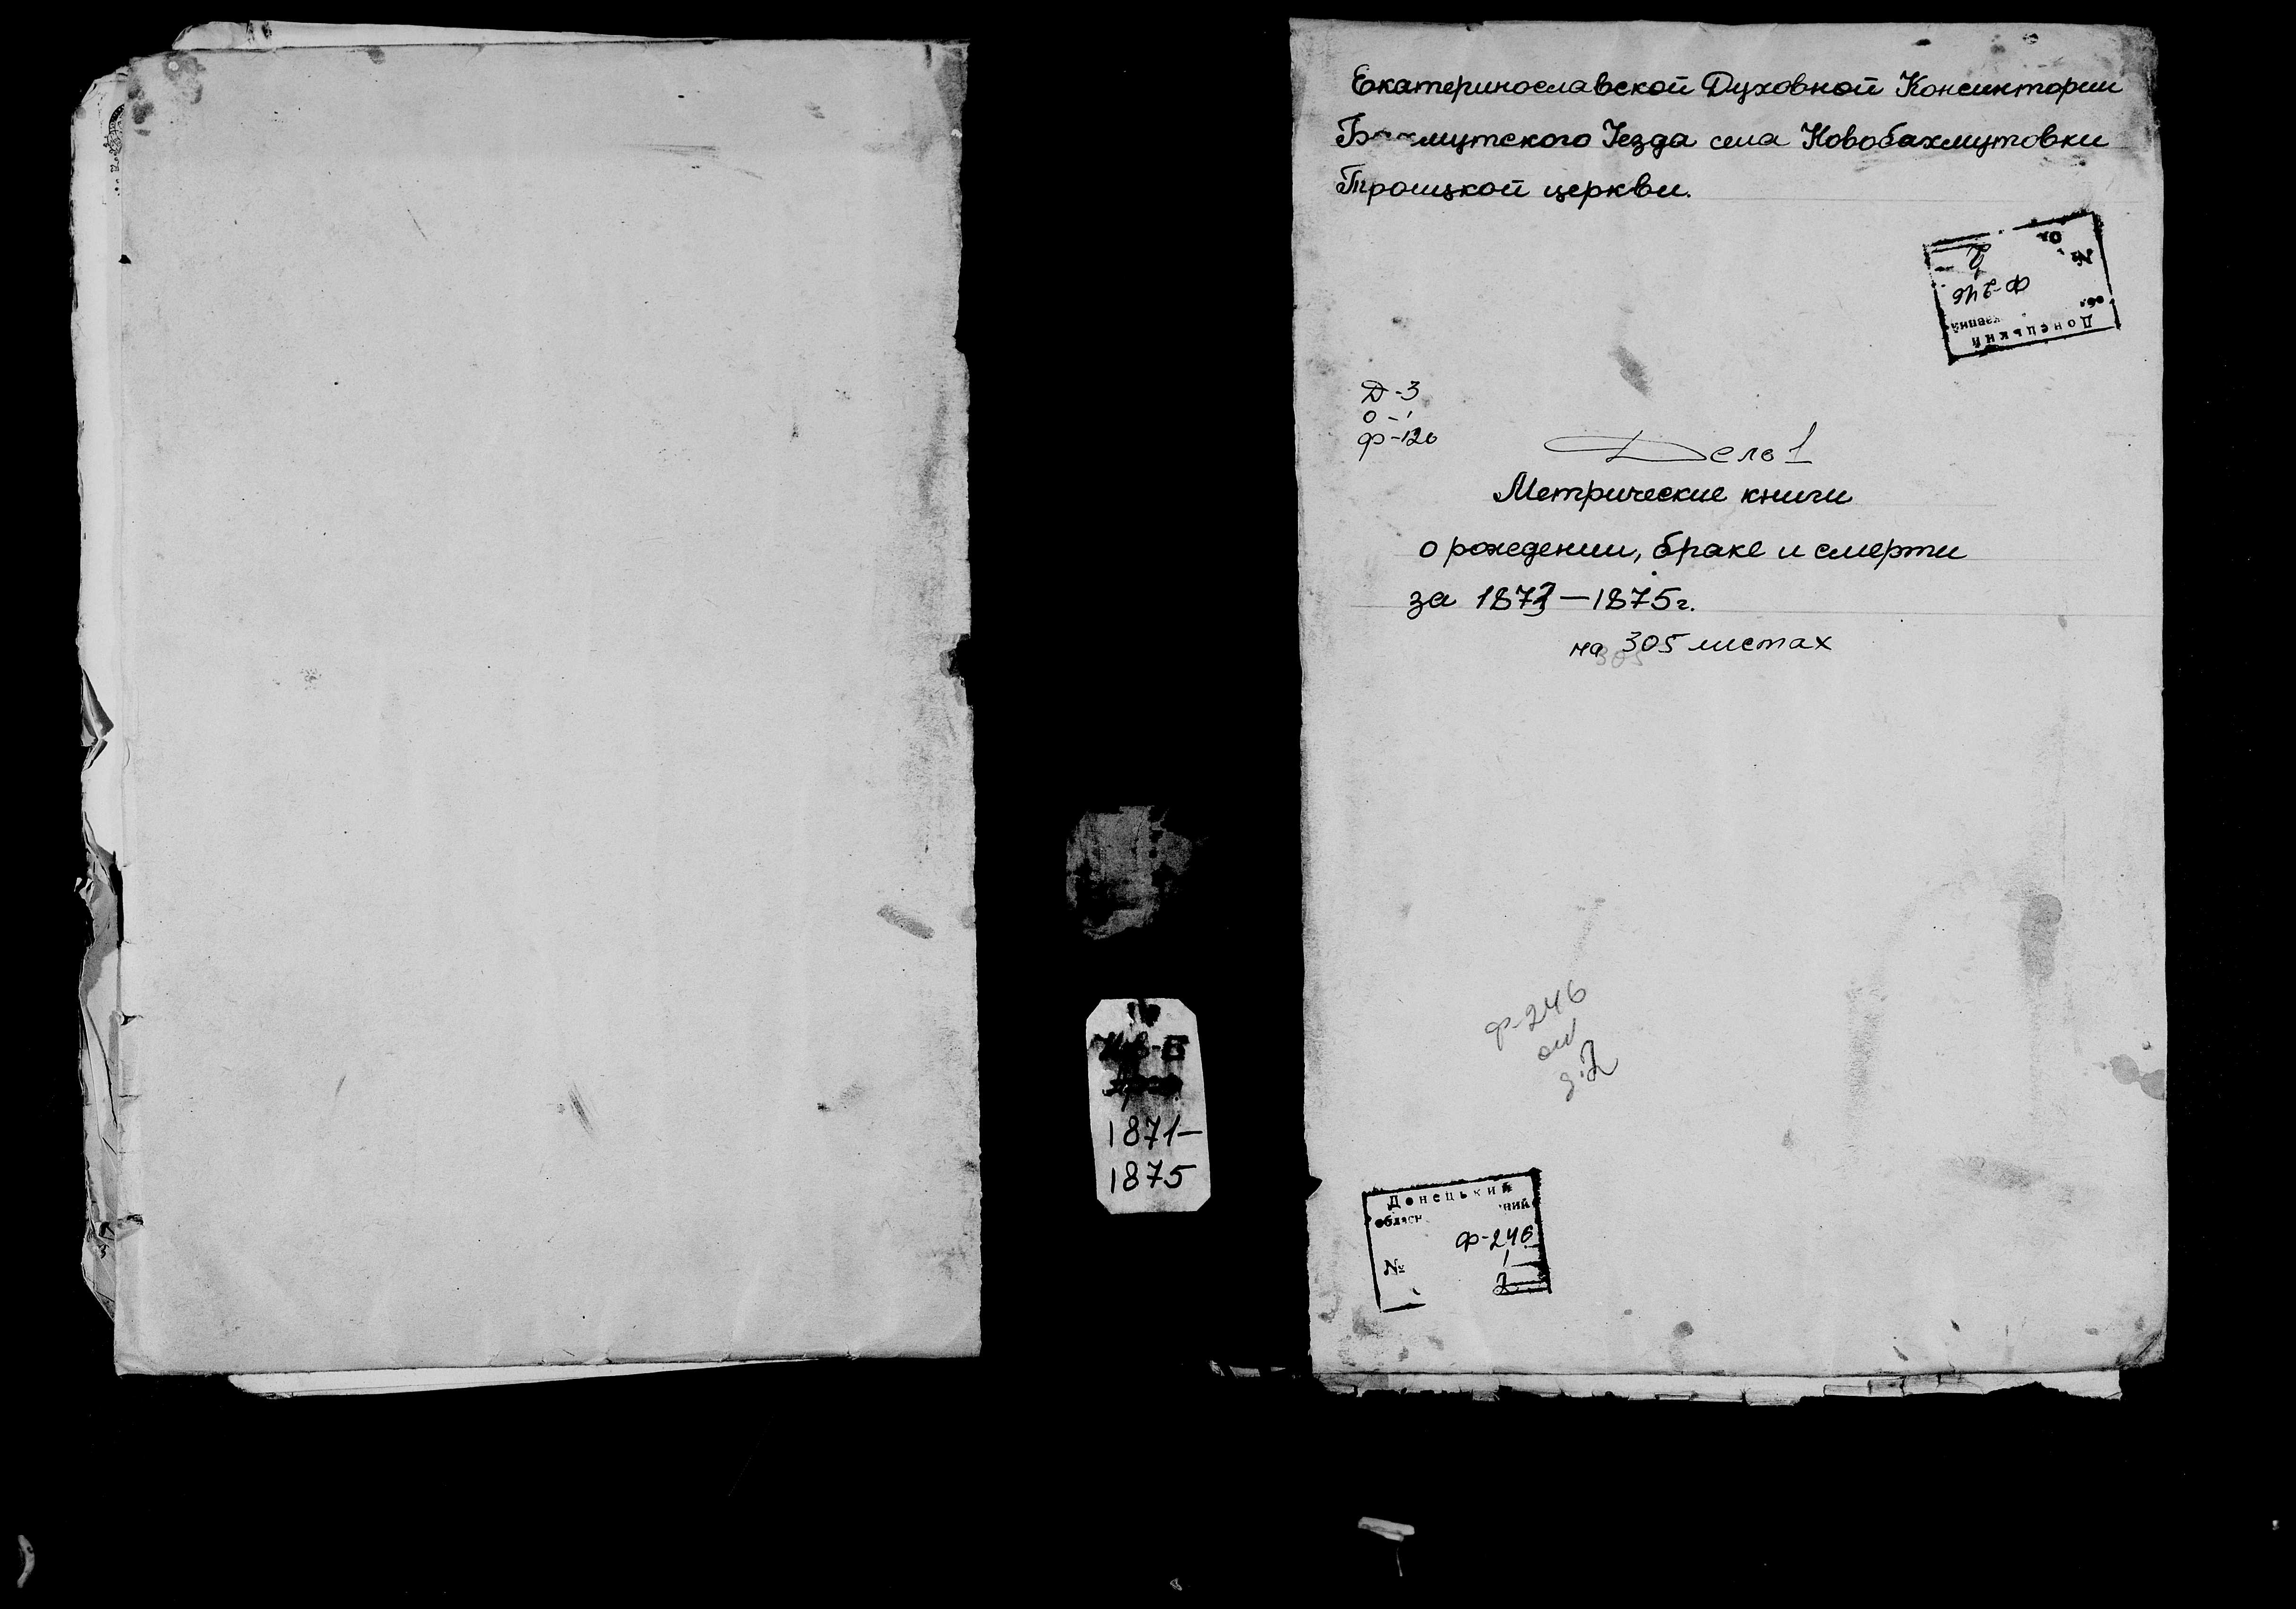 Екатеринославской Духовной Консинтории
Бахмутского Уезда села Новобахмутовки
Троицкой церкви.
№ От
2
Ф-246
обл
Донецький
Д-3
О-1
Ф-120
Дело 1
Метрические книги
о рождении, браке и смерти
за 1871—1875г.
на 305 листах
305
Ф-246
оп1
д.2
1871—
1875
Донецький
Ф-246
1
№
2